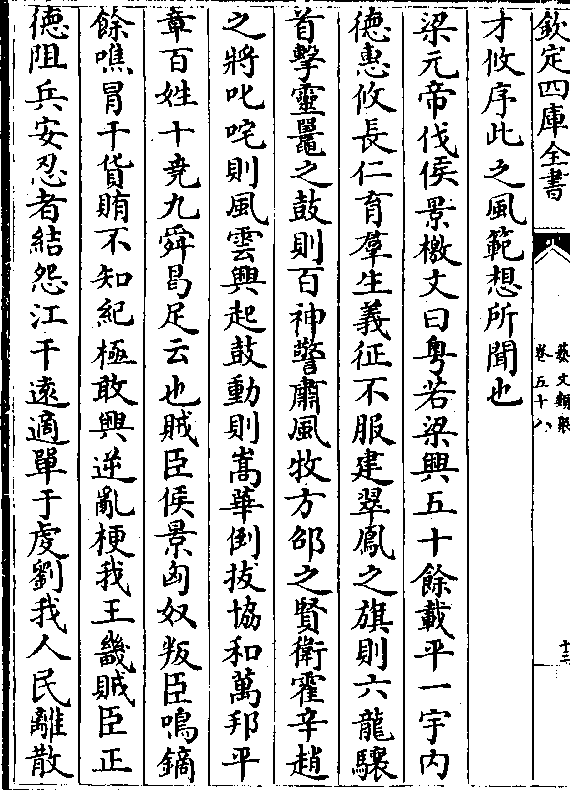 欽定四庫全書
藝文類聚
卷五十八
十三
才攸序此之風範想所聞也
梁元帝伐侯景檄文曰粤若梁興五十餘載平一宇内
德惠攸長仁育羣生義征不服建翠鳳之旗則六龍驤
首擊靈鼉之鼓則百神警肅風牧方邵之賢衛霍辛趙
之將叱咤則風雲興起鼓動則嵩華倒拔協和萬邦平
章百姓十堯九舜曷足云也賊臣侯景匈奴叛臣鳴鏑
餘噍冒干貨賄不知紀極敢興逆亂梗我王畿賊臣正
德阻兵安忍者結怨江干遠適單于䖍劉我人民離散